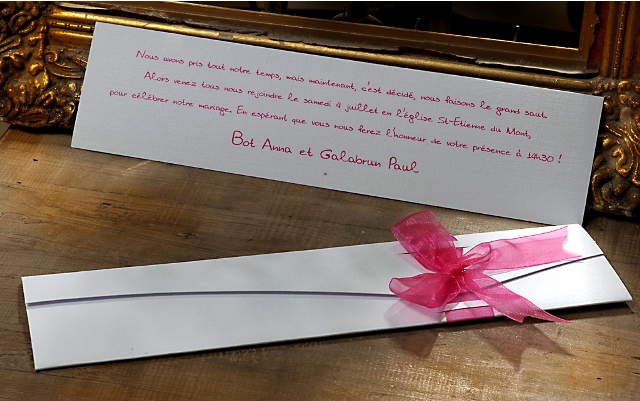 Nous avons pris tout notre temps, mais maintenant, c'est décidé, nous faisons le grand saut.
Alors venez tous nous rejoindre le samedi 4 juillet en l'église St-Etienne du Mont,
pour célébrer notre mariage. En espérant que vous nous ferez l'honneur de votre présence à 14h30 !
Bot Anna et Galabrun Paul